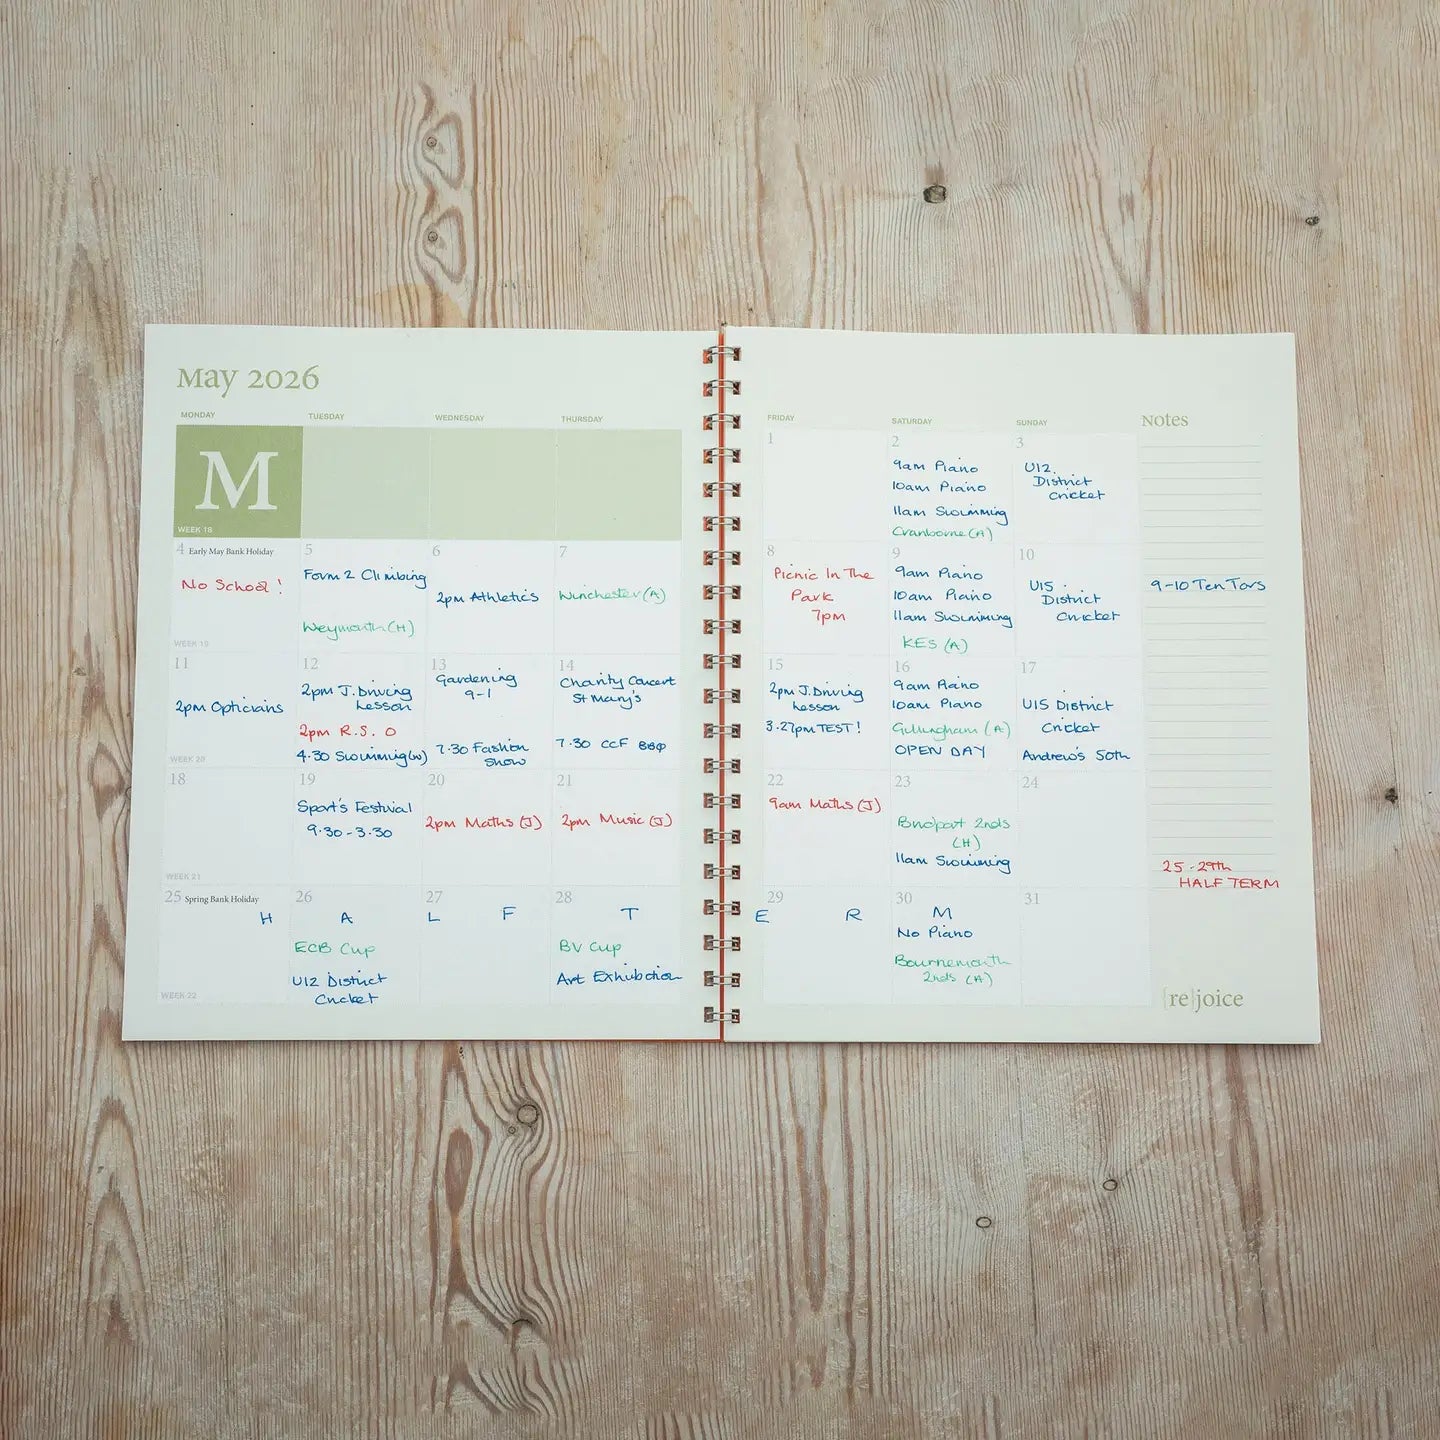 May 2026
MONDAY TUESDAY WEDNESDAY THURSDAY FRIDAY SATURDAY SUNDAY Notes
M
WEEK 18
1
2
9am Piano
10am Piano
11am Swimming
Cranborne (A)
3
U12
District
Cricket
4 Early May Bank Holiday
No School !
WEEK 19
5
Form 2 Climbing
Weymouth (H)
6
2pm Athletics
7
Winchester (A)
8
Picnic In The
Park
7pm
9
9am Piano
10am Piano
11am Swimming
KES (A)
10
U15
District
Cricket
9-10 Ten Tors
11
2pm Opticians
WEEK 20
12
2pm J. Driving
Lesson
2pm R.S. O
4.30 Swimming (W)
13
Gardening
9-1
7.30 Fashion
Show
14
Charity Concert
St Mary's
7.30 CCF BBQ
15
2pm J. Driving
Lesson
3.27pm TEST!
16
9am Piano
10am Piano
Gillingham (A)
OPEN DAY
17
U15 District
Cricket
Andrew's 50th
18
WEEK 21
19
Sport's Festival
9.30 - 3.30
20
2pm Maths (J)
21
2pm Music (J)
22
9am Maths (J)
23
Bridport 2nds
(H)
11am Swimming
24
25 - 29th
HALF TERM
25 Spring Bank Holiday
WEEK 22
26
27
28
29
30
31
H A L F T E R M
ECB Cup
U12 District
Cricket
BV Cup
Art Exhibition
No Piano
Bournemouth
2nds (A)
{re}joice